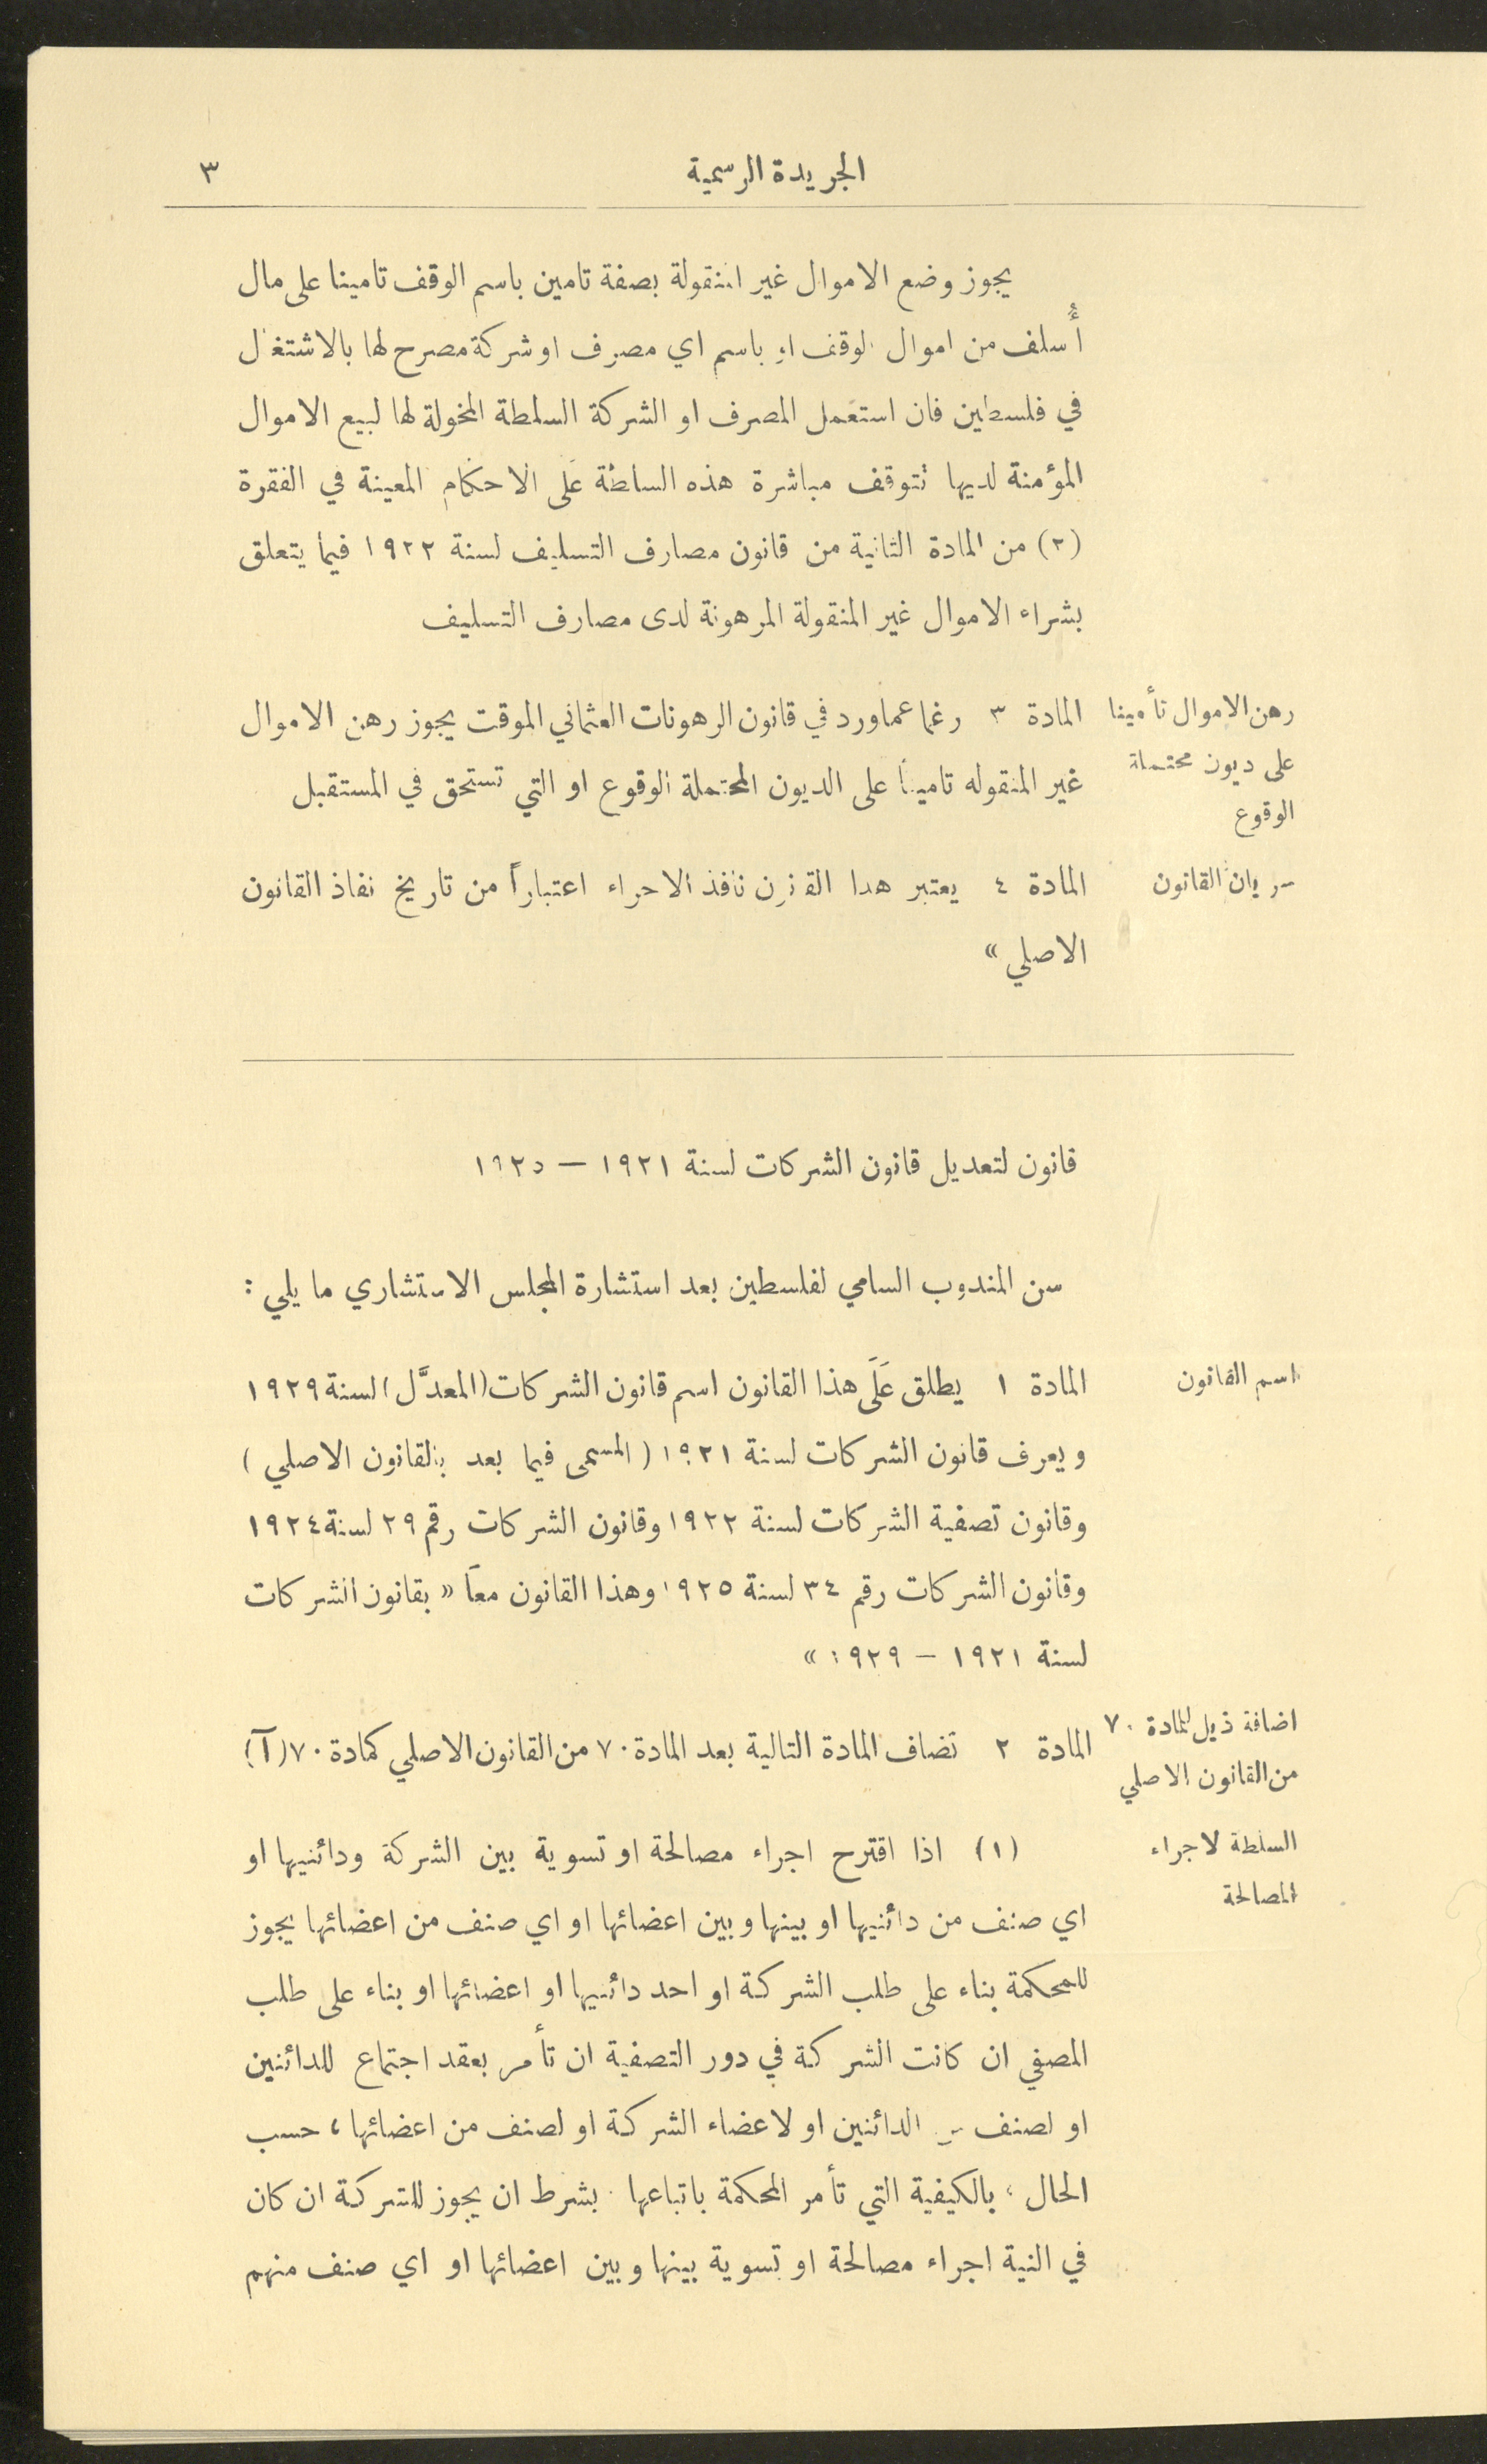 الجريدة الرسمية ٣
يجوز وضع الاموال غير المنقولة بصفة تامين باسم الوقف تامينا على مال
أُسلف من اموال الوقف او باسم اي مصرف او شركة مصرح لها بالاشتغال
في فلسطين فان استعمل المصرف او الشركة السلطة المخولة لها لبيع الاموال
المؤمنة لديها تتوقف مباشرة هذه السلطة عَلى الاحكام المعينة في الفقرة
(٢) من المادة الثانية من قانون مصارف التسليف لسنة ١٩٢٢ فيما يتعلق
بشراء الاموال غير المنقولة المرهونة لدى مصارف التسليف
رهن الاموال تأمينا
على ديون محتملة
الوقوع
المادة ٣ رغما عما ورد في قانون الرهونات العثماني الموقت يجوز رهن الاموال
غير المنقوله تامينا على الديون المحتملة الوقوع او التي تستحق في المستقبل
سريان القانون
المادة ٤ يعتبر هذا القانون نافذ الاجراء اعتباراً من تاريخ نفاذ القانون
الاصلي »
قانون لتعديل قانون الشركات لسنة ١٩٢١ — ١٩٢٥
سن المندوب السامي لفلسطين بعد استشارة المجلس الاستشاري ما يلي :
اسم القانون
المادة ١ يطلق عَلَى هذا القانون اسم قانون الشركات (المعدَّل) لسنة ١٩٢٩
ويعرف قانون الشركات لسنة ١٩٢١ ( المسمى فيما بعد بالقانون الاصلي )
وقانون تصفية الشركات لسنة ١٩٢٢ وقانون الشركات رقم ٢٩ لسنة ١٩٢٤
وقانون الشركات رقم ٣٤ لسنة ١٩٢٥ وهذا القانون معاً « بقانون الشركات
لسنة ١٩٢١ – ١٩٢٩ »
اضافة ذيل للمادة ٧٠
من القانون الاصلي
المادة ٢ تضاف المادة التالية بعد المادة ٧٠ من القانون الاصلي كمادة ٧٠ (آ)
السلطة لاجراء
المصالحة
(١) اذا اقترح اجراء مصالحة او تسوية بين الشركة ودائنيها او
اي صنف من دائنيها او بينها وبين اعضائها او اي صنف من اعضائها يجوز
للمحكمة بناء على طلب الشركة او احد دائنيها او اعضائها او بناء على طلب
المصفي ان كانت الشركة في دور التصفية ان تأمر بعقد اجتماع للدائنين
او لصنف من الدائنين او لاعضاء الشركة او لصنف من اعضائها ، حسب
الحال ، بالكيفية التي تأمر المحكمة باتباعها . بشرط ان يجوز للشركة ان كان
في النية اجراء مصالحة او تسوية بينها وبين اعضائها او اي صنف منهم